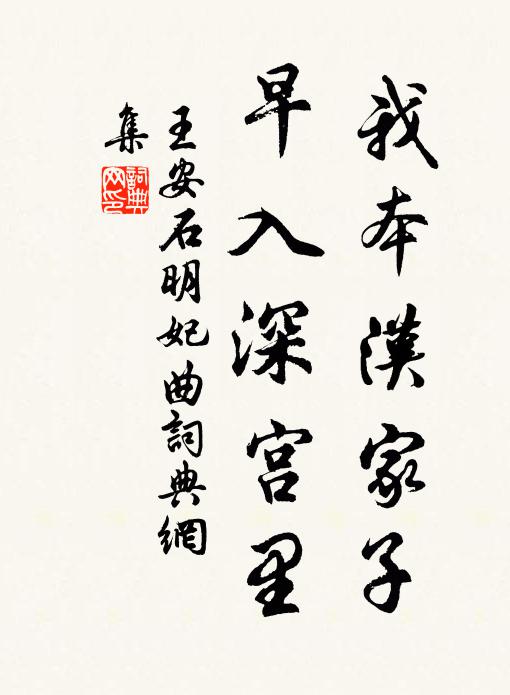 我本漢家子
早入深宫里
王安石明妃曲詞典網
集
詞典
网印